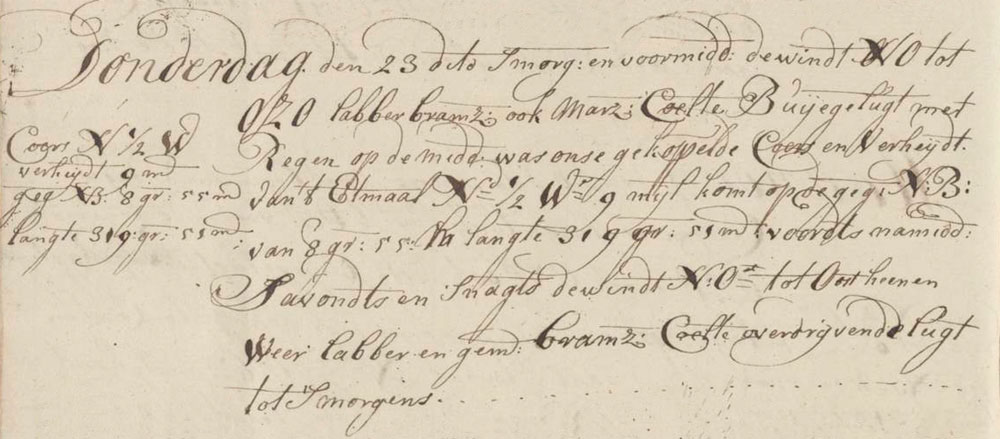 Donderdag. den 23 dito Smorg: en voormidd: de windt NO tot
OZO labber bramz: ook Marz: Coelte Buijege lugt met
Regen op de midd: was onse gekoppelde Coers en Verheijdt.
van 't Etmaal Nd 1/2 Wt 9 mijl komt op de geg: N:B:
van 8 gr: 55: m langte 319 gr: 51 md: voordts namidd:
Savondts en Snagts de windt N:Ot tot Oost heenen
Weer labber en gemd: bramz: Coelte overdrijvende lugt
tot Smorgens.
Coers N 1/2 W
verheijdt 9 m
geg NB: 8 gr: 55 m
langte 319: gr: 51 m: